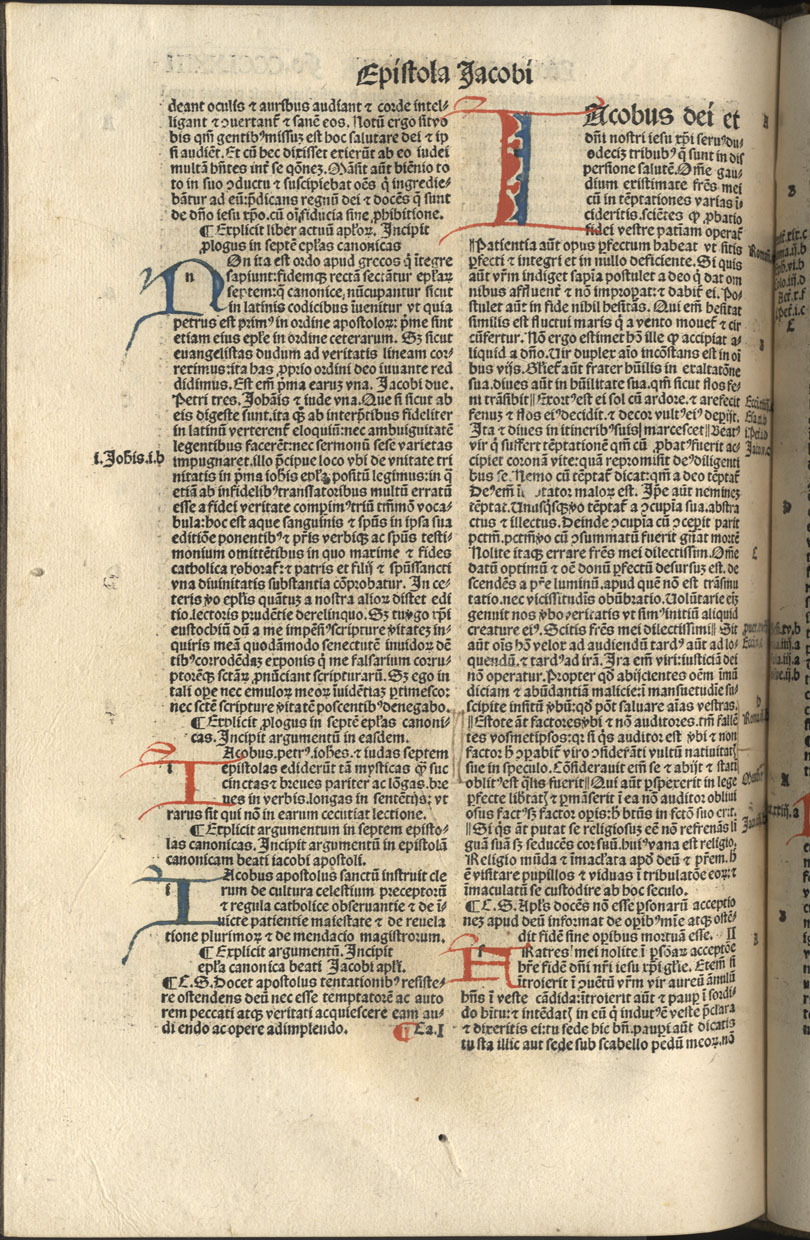 Epistola Jacobi
deant oculis ⁊ auribus audiant ⁊ corde intel⸗
ligant ⁊ ꝯuertant̄ ⁊ sanē eos. Notū ergo sit vo
bis qm̄ gentibꝰ missuʒ est hoc salutare dei ⁊ ip
si audiēt. Et cū hec dixisset exierūt ab eo iudei
multā hn̄tes int̄ se q̄oneʒ. Māsit aūt biēnio to
to in suo ꝯductu ⁊ suscipiebat oēs q̄ ingredie⸗
bātur ad eū: p̄dicans regnū dei ⁊ docēs q̄ sunt
de dn̄o iesu xp̄o. cū oī fiducia sine ꝓhibitione.
¶ Explicit liber actuū aplōꝝ. Incipit
ꝓlogus in septē ep̄las canonicas
NOn ita est ordo apud grecos q̄ ītegre
n sapiunt: fidemqꝫ rectā sectātur ep̄laꝝ
septem: q̄ canonice, nūcupantur sicut
in latinis codicibus īuenitur vt quia
petrus est primꝰ in ordine apostoloꝝ: p̄me sint
etiam eius ep̄le in ordine ceterarum. Sꝫ sicut
euangelistas dudum ad veritatis lineam cor⸗
reximus: ita has ꝓprio ordini deo iuuante red
didimus. Est em̄ p̄ma earuʒ vna. Jacobi due.
Petri tres. Johānis ⁊ iude vna. Que si sicut ab
eis digeste sunt. ita qꝫ ab interp̄tibus fideliter
in latinū verterent̄ eloquiū: nec ambuiguitatē
legentibus facerēt: nec sermonū sese varietas
i. Johis. i. b
impugnaret. illo p̄cipue loco vbi de vnitate tri
nitatis in p̄ma iohis ep̄la positū legimus: in q̄
etiā ab infidelibꝰ translatoribus multū erratū
esse a fidei veritate comperimꝰ triū tm̄mō voca⸗
bula: hoc est aque sanguinis ⁊ spūs in ipsa sua
editiōe ponentibꝰ ⁊ pr̄is verbiqꝫ ac spūs testi⸗
monium omittētibus in quo maxime ⁊ fides
catholica roborat̄: ⁊ patris et filij ⁊ spūssancti
vna diuinitatis substantia cōprobatur. In ce⸗
teris vo ep̄lis quātuʒ a nostra alioꝝ distet edi
tio. lectoris prudētie derelinquo. Sꝫ tu vgo xp̄i
eustochiū dū a me impēsiꝰ scripture v̄itateʒ in⸗
quiris meā quodāmodo senectutē inuidoꝝ dē
tibꝰ corrodēdaʒ exponis q̄ me falsarium corru⸗
ptorēqꝫ sctāꝝ ꝓnūciant scripturarū. Sꝫ ego in
tali ope nec emuloꝝ meoꝝ īuidētiaʒ ptimesco:
nec sctē scripture v̄itatē poscentibꝰ denegabo.
¶ Explicit ꝓlogus in septē ep̄las canoni⸗
cas. Incipit argumentū in easdem.
IAcobus. petrꝰ. iohēs. ⁊ iudas septem
i epistolas ediderūt tā mysticas q̄ suc
cinctas ⁊ breues pariter ac lōgas. bre
ues in verbis. longas in sentētijs: vt
rarus sit qui nōn in earum cecutiat lectione.
¶ Explicit argumentum in septem episto⸗
las canonicas. Incipit argumentū in epistolā
canonicam beati iacobi apostoli.
IAcobus apostolus sanctū instruit cle
i rum de cultura celestium preceptorū
⁊ regula catholice obseruantie ⁊ de ī⸗
uicte patientie maiestate ⁊ de reuela
tione plurimoꝝ ⁊ de mendacio magistrorum.
¶ Explicit argumentū. Incipit
ep̄la canonica beati Jacobi apl̄i.
¶ C. S. Docet apostolus tentationibꝰ resiste⸗
re ostendens deū nec esse temptatorē ac auto
rem peccati atqꝫ veritati acquiescere eam au⸗
di endo ac opere adimplendo. ¶ Ca. I
IAcobus dei et
dn̄i nostri iesu xp̄i seruꝰ du⸗
odeciʒ tribubꝰ q̄ sunt in dis
persione salutē. Om̄e gau⸗
dium existimate fr̄es mei
cū in tēptationes varias ī⸗
cideritis. sciētes ꝙ ꝓbatio
fidei vestre patiam operat̄
Patientia aūt opus p̄fectum habeat vt sitis
p̄fecti ⁊ integri et in nullo deficiente. Si quis
aūt vr̄m indiget sapīa postulet a deo q̄ dat om
nibus affluent̄ ⁊ nō impropat: ⁊ dabit̄ ei. Po⸗
stulet aūt in fide nihil hesitās. Qui em̄ hesitat
similis est fluctui maris q̄ a vento mouet̄ ⁊ cir
cūfertur. Nō ergo estimet hō ille ꝙ accipiat a⸗
liquid a dn̄o. Uir duplex aīo incōstans est in oī
bus vijs. Gliet̄ aūt frater hūilis in exaltatōne
sua. diues aūt in hūilitate sua. qm̄ sicut flos fe⸗
ni trāsibit Exortꝰ est ei sol cū ardore. ⁊ arefecit
fenuʒ ⁊ flos eiꝰ decidit. ⁊ decor vultꝰ eiꝰ deperijt.
Ita ⁊ diues in itineribꝰ suis marcescet Beatꝰ
vir q̄ suffert tēptationē qm̄ cū ꝓbatꝰ fuerit ac⸗
cipiet coronā vite: quā repromisit deꝰ diligenti
bus se. Nemo cū tēptat̄ dicat: qm̄ a deo tēptat̄
Deꝰ em̄ tator maloꝝ est. Ip̄e aūt neminem
tēptat. Unusqꝫqꝫ vo tēptat̄ a ꝯcupīa sua. abstra
ctus ⁊ illectus. Deinde ꝯcupīa cū ꝯcepit parit
pctm̄. pctm̄ vo cū ꝯsummatū fuerit gn̄at mortē
Nolite itaqꝫ errare fr̄es mei dilectissim. Om̄e
datū optimū ⁊ oē donū p̄fectū desursuʒ est. de
scendēs a pr̄e luminū. apud quē nō est trāsmu
tatio. nec vicissitudīs obūbratio. Uolūtarie eīʒ
genuit nos v̄bo veritatis vt simꝰ initiū aliquid
creature eiꝰ. Scitis fr̄es mei dilectissimi Sit
aūt oīs hō velox ad audiendū tardꝰ aūt ad lo⸗
quendū. ⁊ tardꝰ ad irā. Ira em̄ viri: iusticiā dei
nō operatur. Propter qd̄ abijcientes oēm īmū
diciam ⁊ abūdantiā malicie: ī mansuetudīe su⸗
scipite insitū v̄bū: qd̄ pōt saluare aīas vestras.
Estote aūt factores v̄bi ⁊ nō auditores. tm̄ fallē
tes vosmetipsos: qꝛ si q̄s auditor est v̄bi ⁊ non
factor h̄ ꝯparabit̄ viro ꝯsiderāti vultū natiuitatꝭ
sue in speculo. Cōsiderauit em̄ se ⁊ abijt ⁊ stati
oblitꝰ est q̄lis fuerit Qui aūt p̄spexerit in lege
p̄fecte libtatꝭ ⁊ p̄manserit ī ea nō auditor obliui
osus factꝰ sꝫ factor opis: h̄ btūs in fctō suo erit.
Si q̄s aūt putat se religiosuʒ eē nō refrenās li
guā suā sꝫ seducēs cor suū. huiꝰ vana est religio.
Religio mūda ⁊ īmaclata apd̄ deū ⁊ pr̄em. h̄
ē visitare pupillos ⁊ viduas ī tribulatōe eoꝝ: ⁊
īmaculatū se custodire ab hoc seculo.
¶ C. S. Apl̄s docēs nō esse psonarū acceptio
neʒ apud deū informat de opibꝰ mīe atqꝫ ostē⸗
dit fidē sine opibus mortuā esse. II
FRatres mei nolite ī psōaꝝ acceptōe
hr̄e fidē dn̄i nr̄i iesu xp̄i gl̄ie. Etem̄ si
ītroierit ī ꝯuētū vr̄m vir aureū ānulū
hn̄s ī veste cādida: ītroierit aūt ⁊ paup ī sordi⸗
do hītu: ⁊ intēdatꝭ in eū q̄ indutꝰ ē veste p̄clara
⁊ dixeritis ei: tu sede hic bn̄. paupi aūt dicatis
tu sta illic aut sede sub scabello pedū meoꝝ. nō